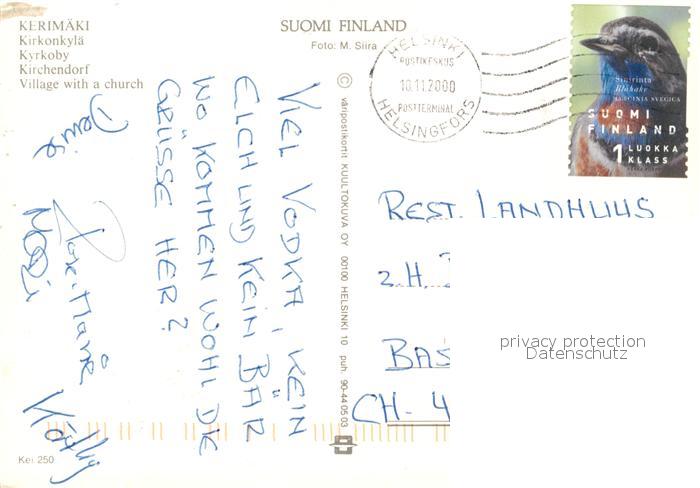 KERIMÄKI
Kirkonkylä
Kyrkoby
Kirchendorf
Village with a church
SUOMI FINLAND
Foto: M. Siira
HELSINKI
POSTIKESKUS
10.11.2000
POSTTERMINAL
HELSINGFORS
Sinirinta
Blåhake
LUSCINIA SVECICA
SUOMI
FINLAND
1 LUOKKA
KLASS
© väripostikortit KUULTOKUVA OY 00100 HELSINKI 10 puh. 90-44 05 03
VIEL VODKA, KEIN
ELCH UND KEIN BÄR
WO KOMMEN WOHL DIE
GRÜSSE HER?
Denise
REST. LANDHUUS
z.H.
BAS
CH-4
privacy protection
Datenschutz
Kei 250